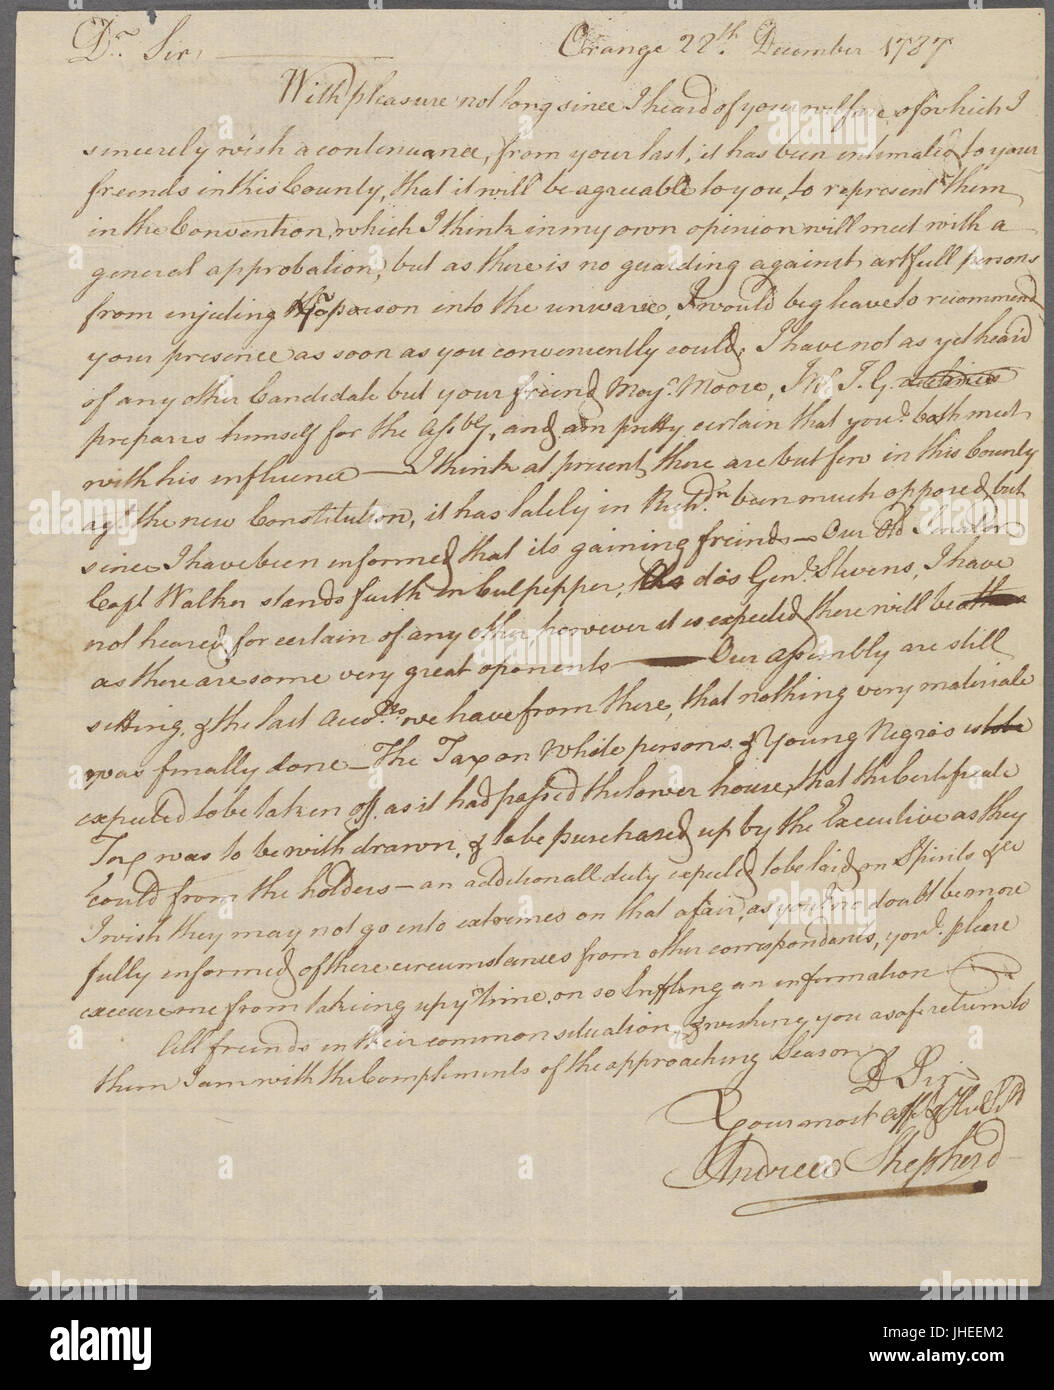 Dr. Sir, Orange 22th. December 1787
With pleasure not long since I heard of your wellfare, of which I
sincerely wish a continuance, from your last, it has been intimated to your
freinds in this County, that it will be agreeable to you, to represent them
in the Convention, which I think in my own opinion will meet with a
general approbation, but as there is no guarding against artfull persons
from injecting poison into the unware, I would beg leave to recommend
your presence as soon as you conveniently could, I have not as yet heard
of any other Candidate but your freind Majr. Moore, Mr. J. G. declines
prepares himself for the Asbly, and am pretty certain that youd. both meet
with his influence — I think at present there are but few in this County
agt. the new Constitution, it has lately in Richdn. been much opposed, but
since I have been informed that its gaining freinds — Our Old Senator
Capt Walker stands furth in Culpepper, as does Genl. Stevens, I have
not heared for certain of any other however it is expected there will be others
as there are some very great oponents — Our assembly are still
sitting, & the last Accots. we have from there, that nothing very materiale
was finally done — The Tax on White persons & Young Negros is to be
expected to be taken off, as it had passed the lower house, that the certificate
Tax was to be withdrawn, & to be purchased up by the Executive as they
Could from the holders — an additionall duty expected to be laid on Spirits &c
I wish they may not go into extremes on that afair, as you'l no doubt be more
fully informed of these circumstances from other correspondants, youd. please
excuse me from takeing up yr. time on so trifling an information
All freinds in their common situation, & wishing you a safe return to
them I am with the Compliments of the approaching Season
D Sir
Your most affe. & Hu. Sr.
Andrew Shepherd
alamy
alamy stock photo
JHEEM2
www.alamy.com